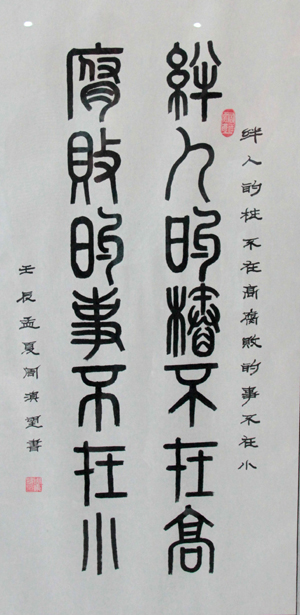 絆人的樁不在高
腐敗的事不在小
絆人的桩不在高腐敗的事不在小
壬辰孟夏周書